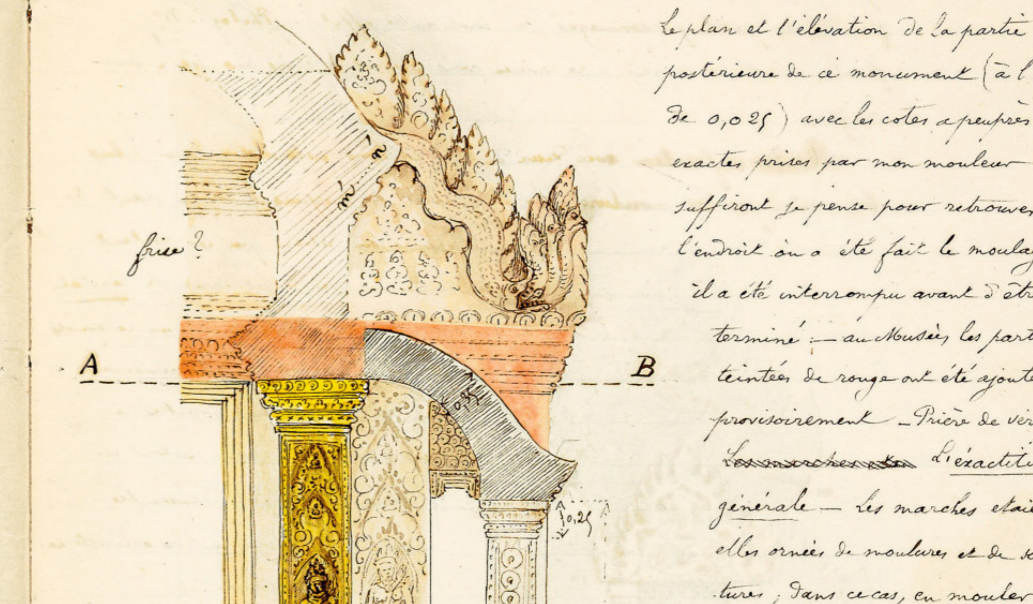 Le plan et l'élévation de la partie
postérieure de ce monument (à l
de 0,025) avec les cotes a peuprès
exactes prises par mon mouleur
suffiront je pense pour retrouver
l'endroit où a été fait le moulag
il a été interrompu avant d'êtr
terminé :— au Musées les part
teintées de rouge ont été ajouté
provisoirement — Prière de ver
L'exactitu
générale — Les marches étaie
elles ornées de moulures et de sc
tures ; dans ce cas, en mouler
frise ?
m' n'
A B
0,35
0,25